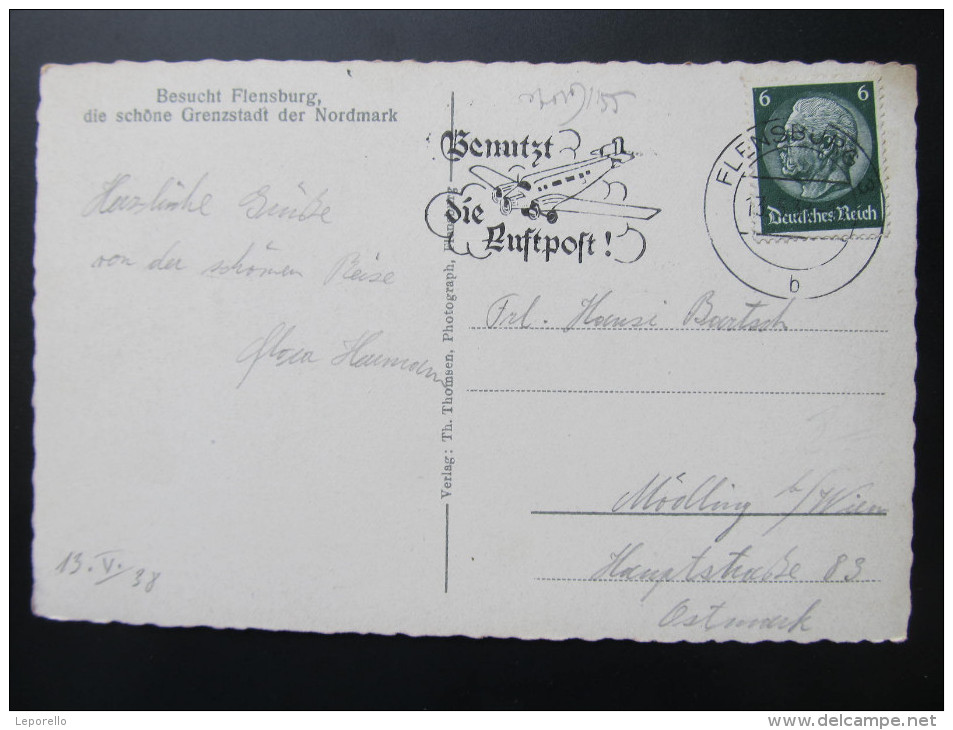 Besucht Flensburg,
die schöne Grenzstadt der Nordmark
Herzliche Grüße
von der schönen Reise
13. V. / 38
Verlag: Th. Thomsen, Photograph, Flensburg
Benutzt
die
Luftpost!
FLENSBURG
b
6 6
Deutsches Reich
Frl. Hansi Bartsch
Mödling b/Wien
Hauptstraße 83
Ostmark
Leporello
www.delcampe.net